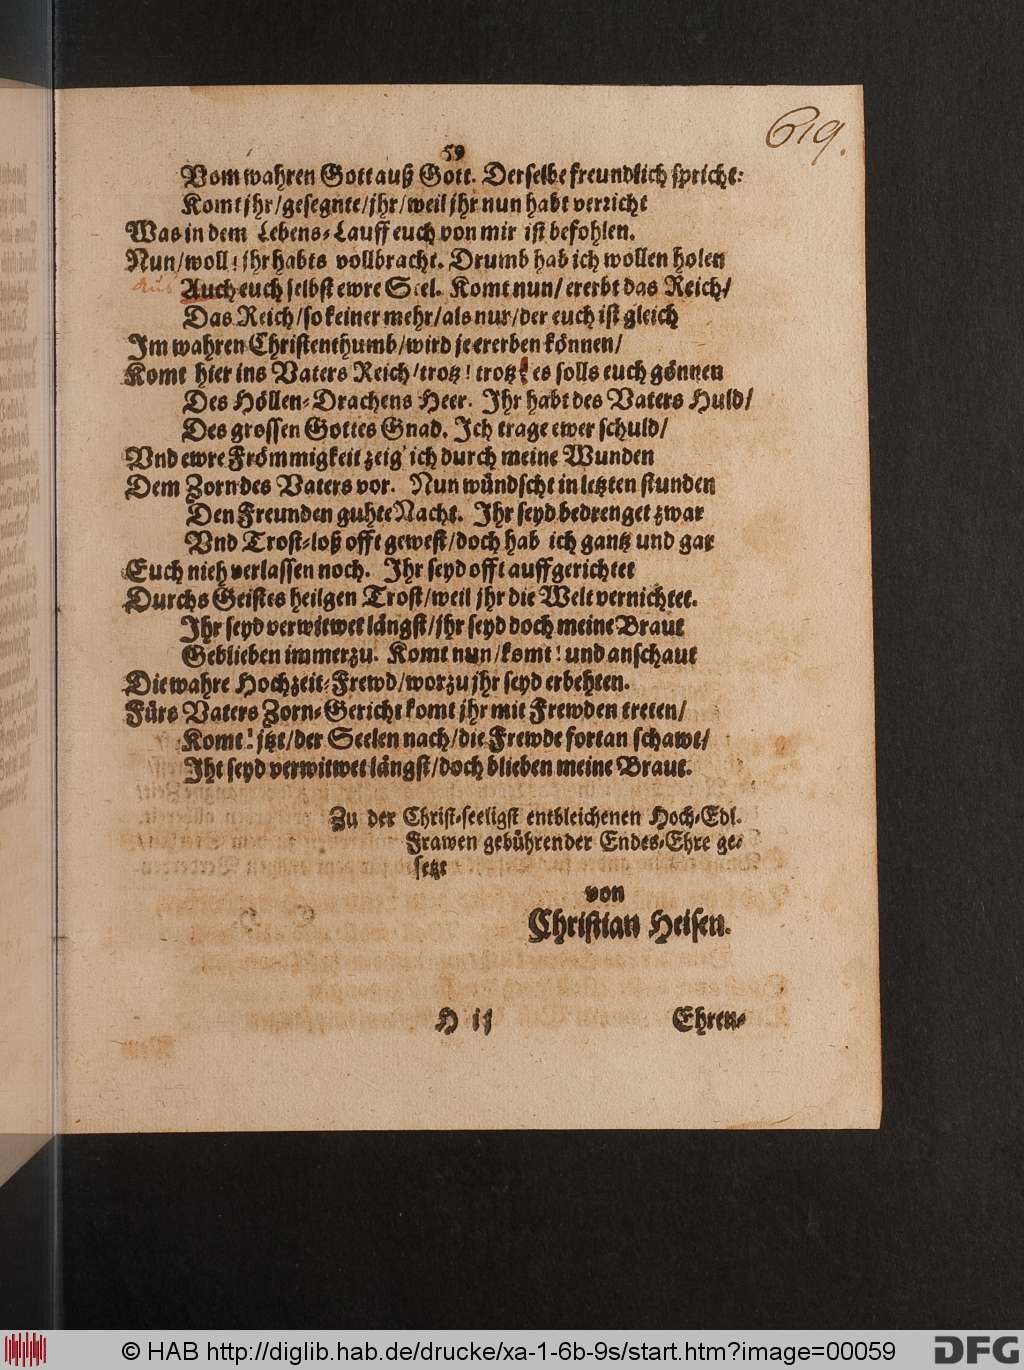 619.
59
Vom wahren Gott auß Gott. Derselbe freundlich spricht:
Komt jhr/gesegnte/jhr/weil jhr nun habt verricht
Was in dem Lebens-Lauff euch von mir ist befohlen.
Nun/woll! jhr habts vollbracht. Drumb hab ich wollen holen
Aus Auch euch selbst ewre Seel. Komt nun/ ererbt das Reich/
Das Reich/so keiner mehr/als nur/der euch ist gleich
Im wahren Christenthumb/wird je ererben können/
Komt hier ins Vaters Reich/trotz! trotz! es solls euch gönnen
Des Höllen-Drachens Heer. Ihr habt des Vaters Huld/
Des grossen Gottes Gnad. Ich trage ewer schuld/
Vnd ewre Frömmigkeit zeig' ich durch meine Wunden
Dem Zorn des Vaters vor. Nun wündscht in letzten stunden
Den Freunden guhte Nacht. Ihr seyd bedrenget zwar
Vnd Trost-loß offt gewest/doch hab ich gantz und gar
Euch nieh verlassen noch. Ihr seyd offt auffgerichtet
Durchs Geistes heilgen Trost/weil jhr die Welt vernichtet.
Ihr seyd verwitwet längst/jhr seyd doch meine Braut
Geblieben immerzu. Komt nun/komt! und anschaut
Die wahre Hochzeit-Frewd/worzu jhr seyd erbehten.
Fürs Vaters Zorn-Gericht komt jhr mit Frewden treten/
Komt! jtzt/der Seelen nach/die Frewde fortan schawt/
Iht seyd verwitwet längst/doch blieben meine Braut.
Zu der Christ-seeligst entbleichenen Hoch-Edl.
Frawen gebührender Endes-Ehre ge-
setzt
von
Christian Heisen.
H ij
Ehren-
© HAB http://diglib.hab.de/drucke/xa-1-6b-9s/start.htm?image=00059
DFG